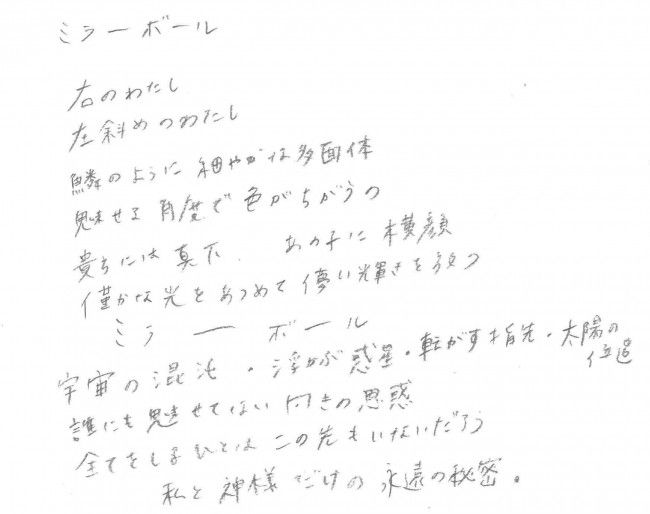 ミラーボール
右のわたし
左斜めのわたし
鱗のように細やかな多面体
魅せる角度で色がちがうの
貴方には真下、あの子に横顔
僅かな光をあつめて儚い輝きを放つ
ミラーボール
宇宙の混沌・浮かぶ惑星・転がす指先・太陽の
位置
誰にも魅せてない向きの思惑
全てをしるひとはこの先もいないだろう
私と神様だけの永遠の秘密。